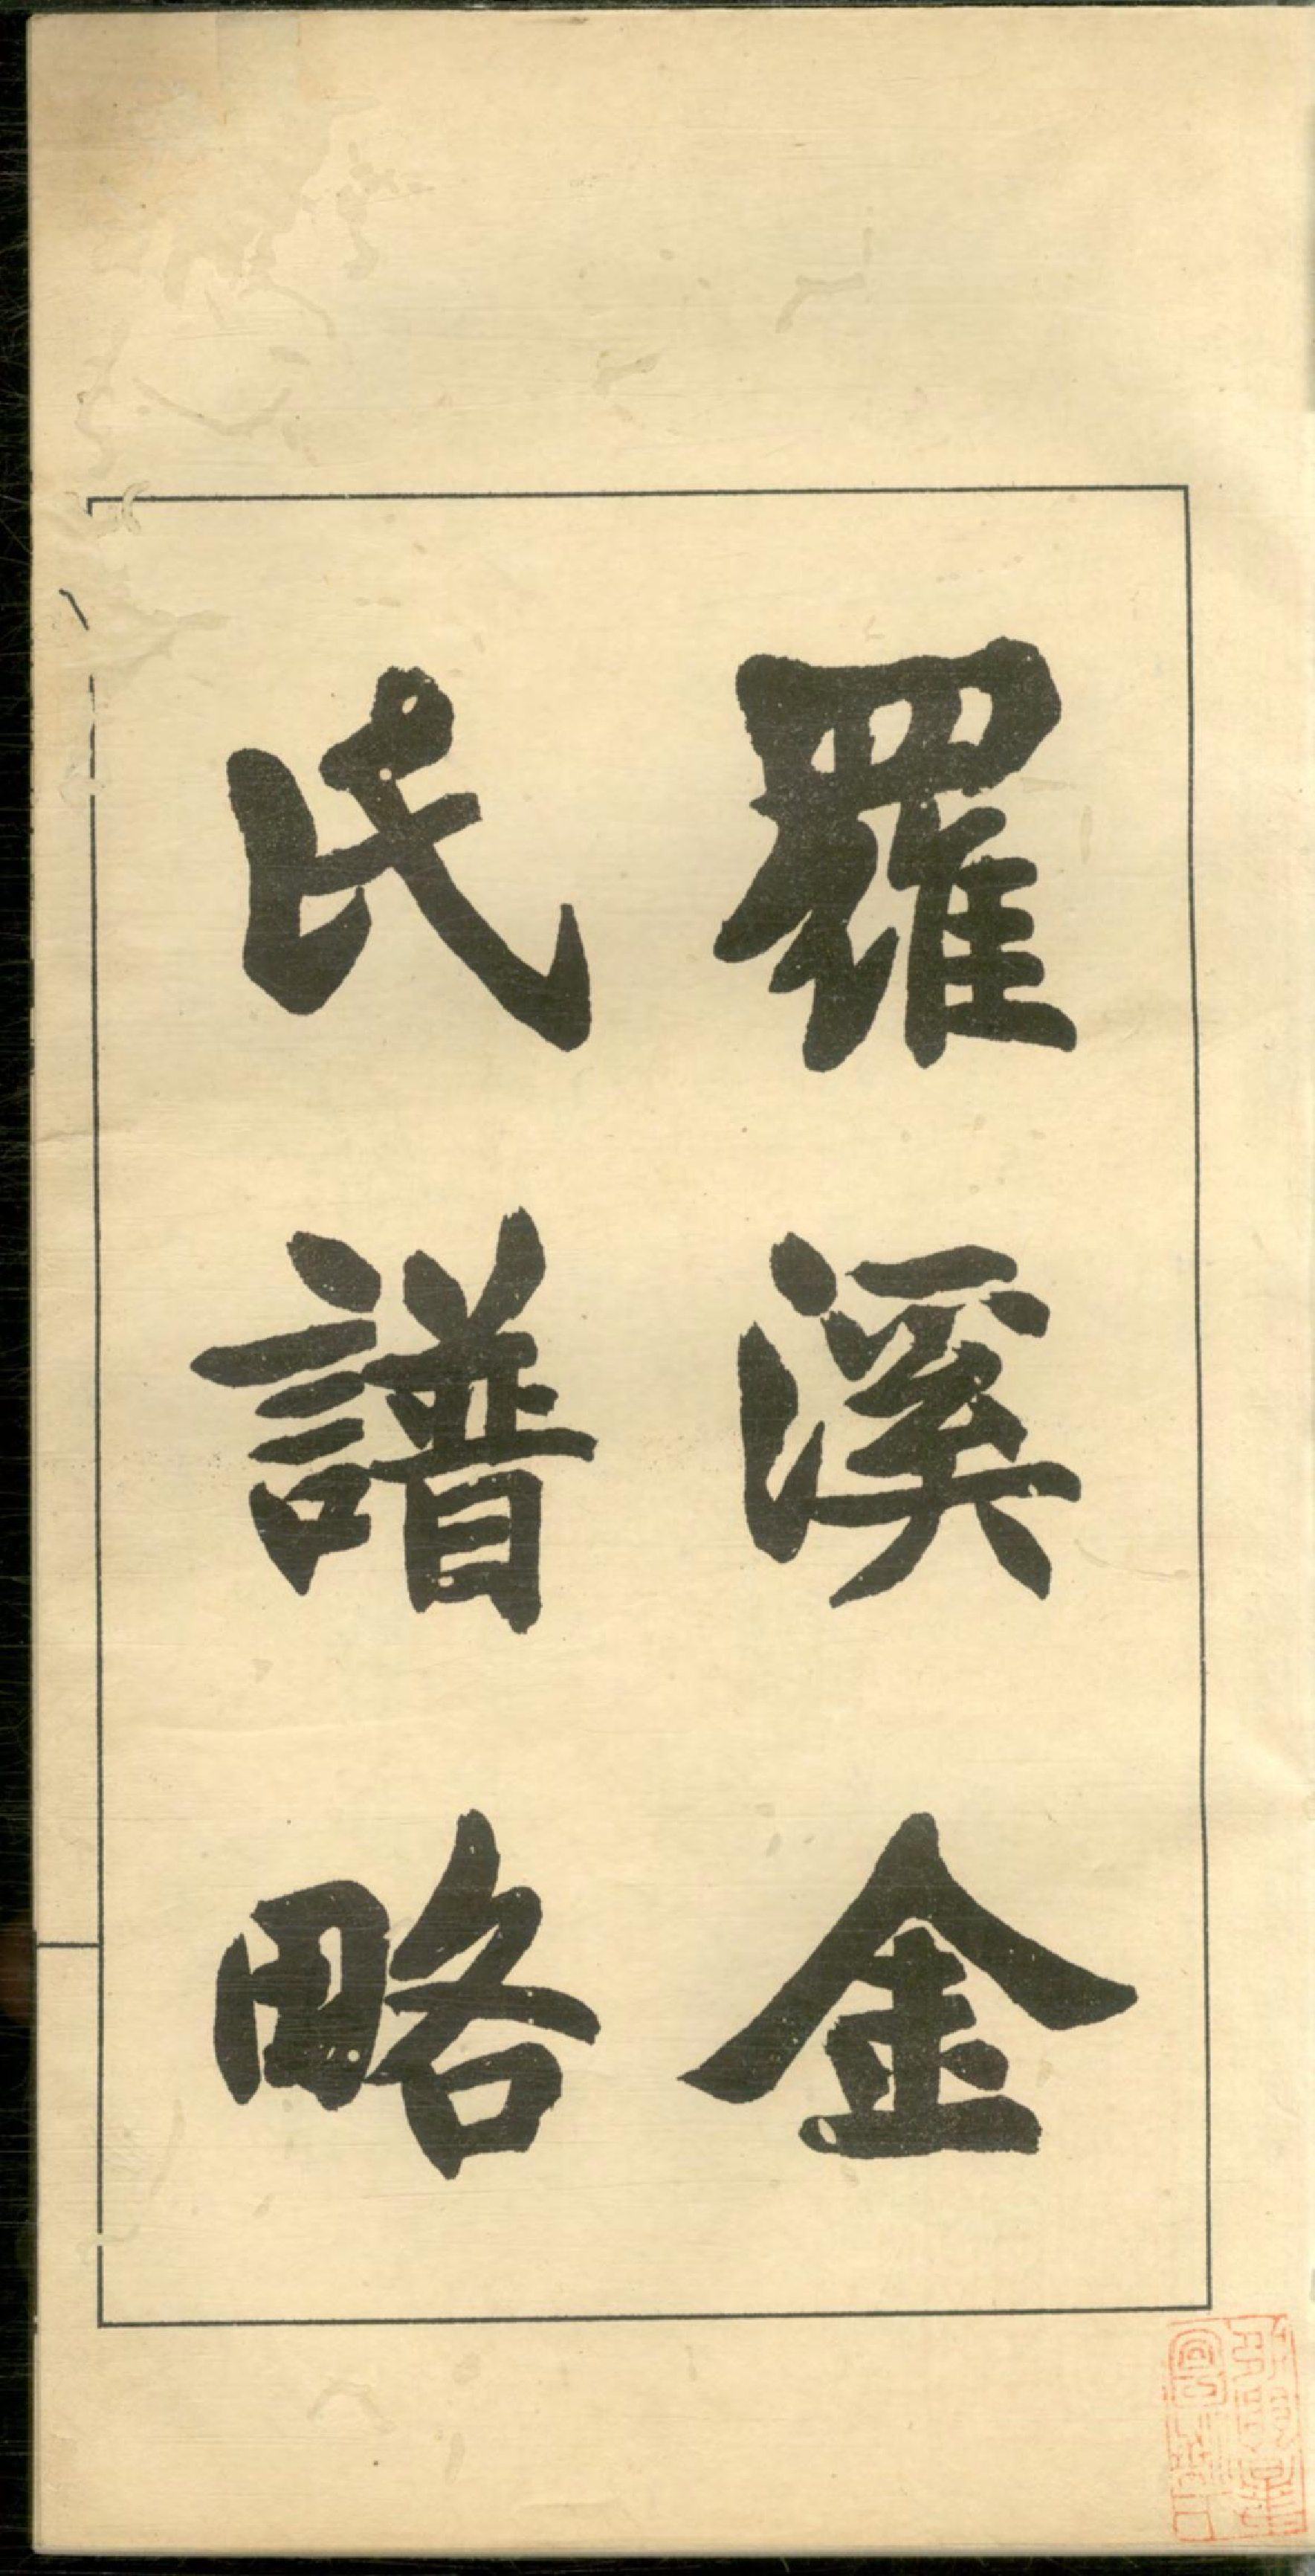 羅溪金
氏譜略